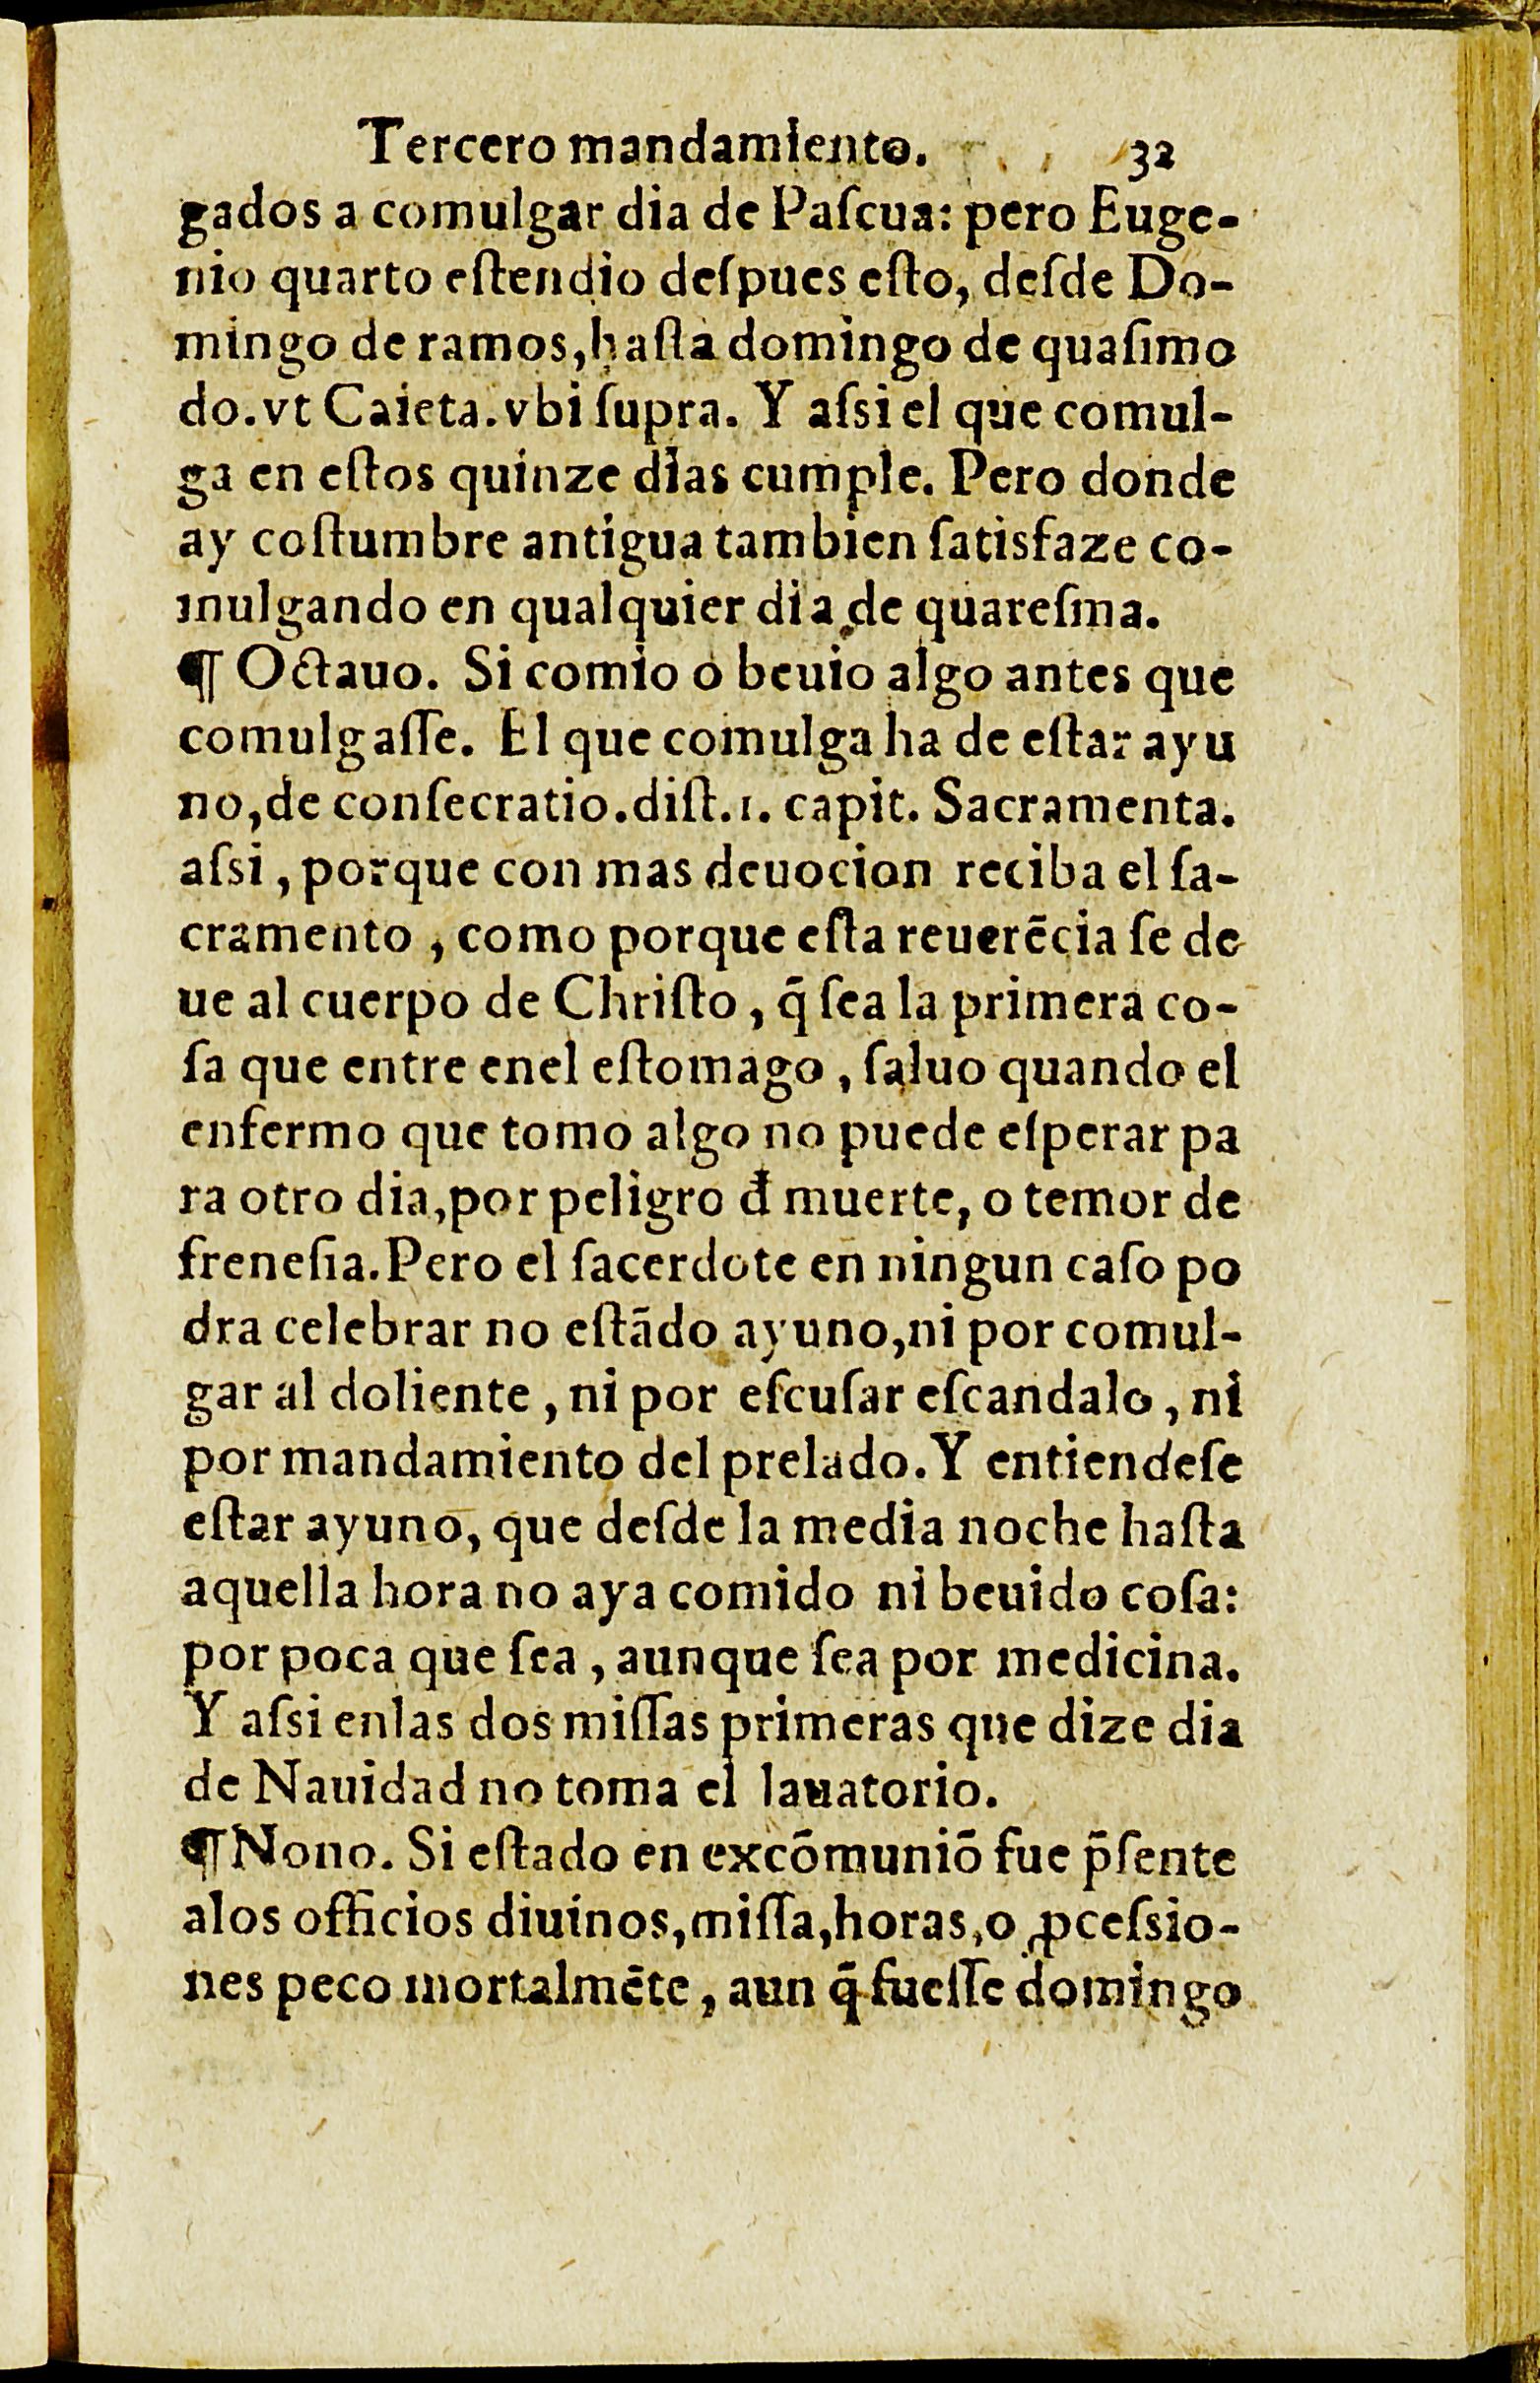 Tercero mandamiento. 32
gados a comulgar dia de Paſcua: pero Euge-
nio quarto eſtendio deſpues eſto, deſde Do-
mingo de ramos, haſta domingo de quaſimo
do. vt Caieta. vbi ſupra. Y aſsi el que comul-
ga en eſtos quinze dias cumple. Pero donde
ay coſtumbre antigua tambien ſatisfaze co-
mulgando en qualquier dia de quareſma.
¶ Octauo. Si comio o beuio algo antes que
comulgaſſe. El que comulga ha de eſtar ayu
no, de conſecratio. diſt. 1. capit. Sacramenta.
aſsi, porque con mas deuocion reciba el ſa-
cramento, como porque eſta reuerēcia ſe de
ue al cuerpo de Chriſto, q̄ ſea la primera co-
ſa que entre enel eſtomago, ſaluo quando el
enfermo que tomo algo no puede eſperar pa
ra otro dia, por peligro đ muerte, o temor de
freneſia. Pero el ſacerdote en ningun caſo po
dra celebrar no eſtādo ayuno, ni por comul-
gar al doliente, ni por eſcuſar eſcandalo, ni
por mandamiento del prelado. Y entiendeſe
eſtar ayuno, que deſde la media noche haſta
aquella hora no aya comido ni beuido coſa:
por poca que ſea, aunque ſea por medicina.
Y aſsi enlas dos miſſas primeras que dize dia
de Nauidad no toma el lauatorio.
¶ Nono. Si eſtado en excōmuniō fue p̄ſente
alos officios diuinos, miſſa, horas, o ꝓceſsio-
nes peco mortalmēte, aun q̄ fueſſe domingo